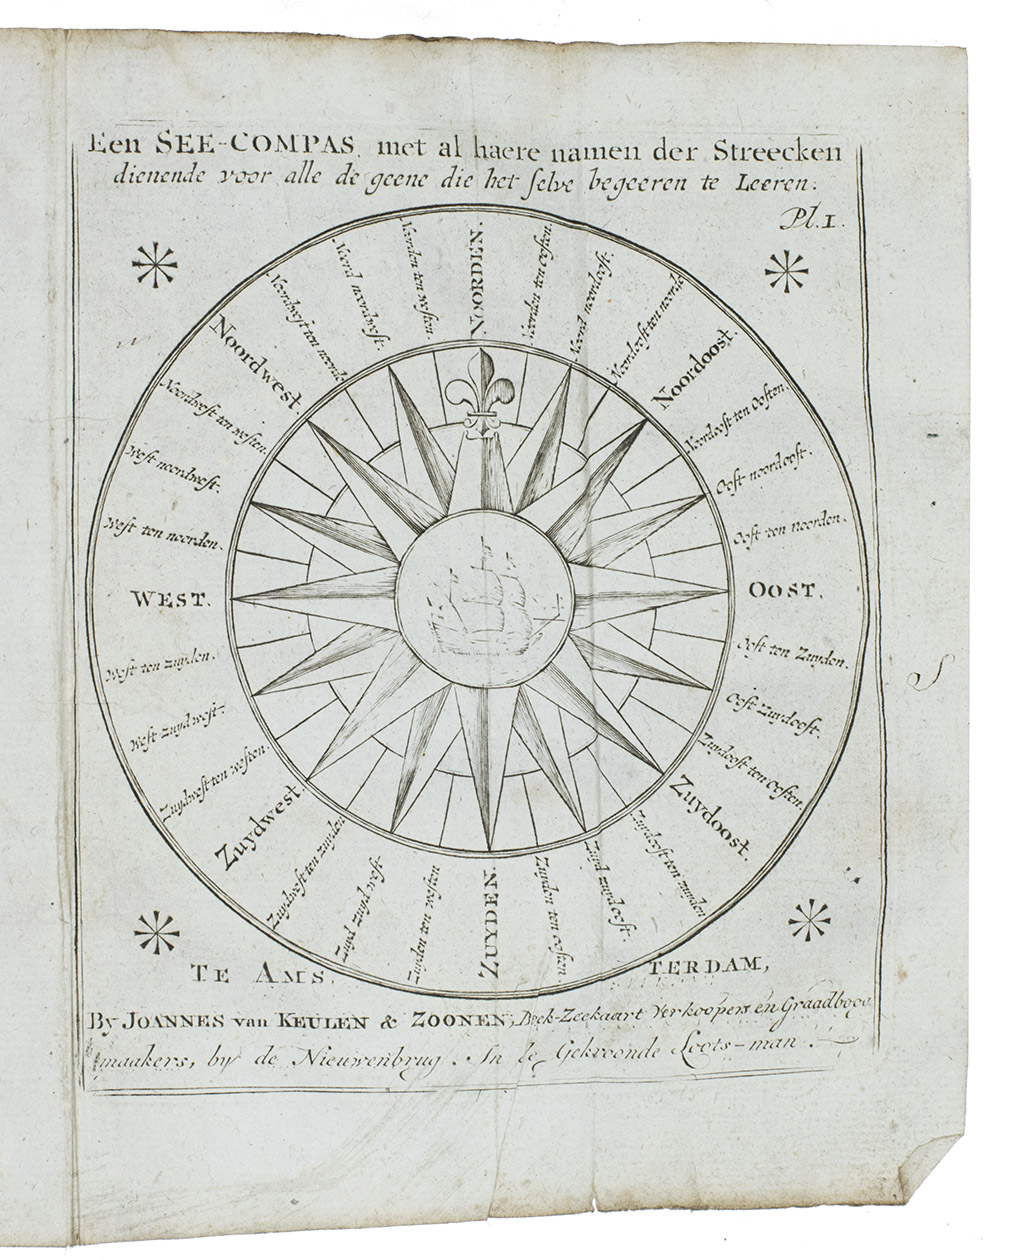 Een SEE-COMPAS, met al haere namen der Streecken
dienende voor alle de geene die het selve begeeren te Leeren:
Pl. I.
NOORDEN.
Noorden ten oosten.
Noord noordoost.
Noordoost ten noorde
Noordoost.
Noordoost ten Oosten.
Oost noordoost.
Oost ten noorden.
OOST.
Oost ten Zuyden.
Oost Zuydoost.
Zuydoost ten Oosten.
Zuydoost.
Zuydoost ten zuyden
Zuyd zuydoost.
Zuyden ten oosten.
ZUYDEN.
Zuyden ten westen
Zuyd Zuyd west
Zuydwest ten zuyden
Zuydwest.
Zuydwest ten westen.
West zuydwest.
West ten zuyden.
WEST.
West ten noorden.
West noordwest.
Noordwest ten westen.
Noordwest.
Noordwest ten noorde
Noord noordwest.
Noorden ten westen.
TE AMS TERDAM,
By JOANNES van KEULEN & ZOONEN, Boek-Zeekaart Verkoopers en Graadboog
maakers, by de Nieuwenbrug. In de Gekroonde Loots-man.
S